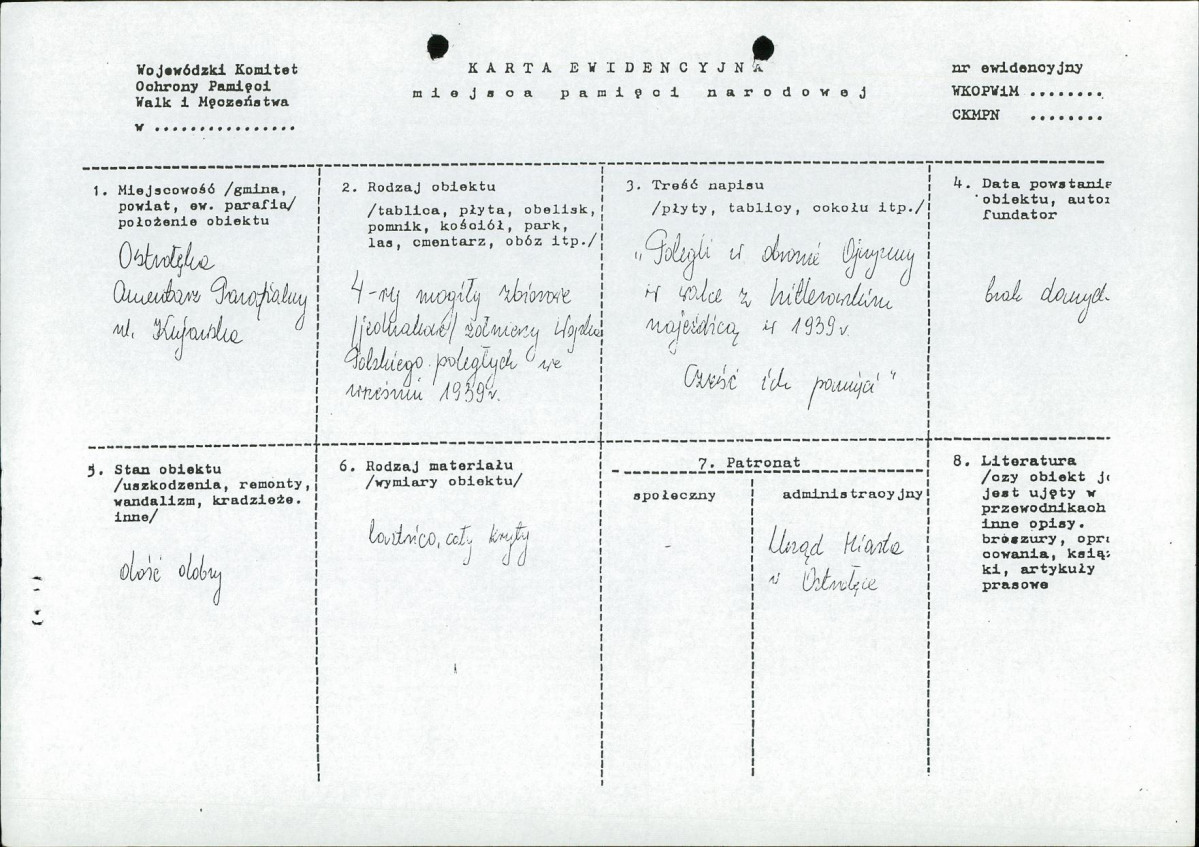 Wojewódzki Komitet
Ochrony Pamięci
Walk i Męczeństwa
w ................
KARTA EWIDENCYJNA
miejsca pamięci narodowej
nr ewidencyjny
WKOPWiM ........
CKMPN ........
1. Miejscowość /gmina,
powiat, ew. parafia/
położenie obiektu
Ostrołęka
Cmentarz Parafialny
ul. Kujawska
2. Rodzaj obiektu
/tablica, płyta, obelisk,
pomnik, kościół, park,
las, cmentarz, obóz itp./
4-ry mogiły zbiorowe
/jednakowe/ żołnierzy Wojska
Polskiego poległych we
wrześniu 1939r.
3. Treść napisu
/płyty, tablicy, cokołu itp./
"Polegli w obronie Ojczyzny
w walce z hitlerowskim
najeźdźcą w 1939r.
Cześć ich pamięci"
4. Data powstanie
obiektu, autor
fundator
brak danych
5. Stan obiektu
/uszkodzenia, remonty,
wandalizm, kradzieże.
inne/
dość dobry
6. Rodzaj materiału
/wymiary obiektu/
7. Patronat
społeczny
-
administracyjny
Urząd Miasta
w Ostrołęce
8. Literatura
/czy obiekt je
jest ujęty w
przewodnikach
inne opisy.
broszury, opra
cowania, książ
ki, artykuły
prasowe